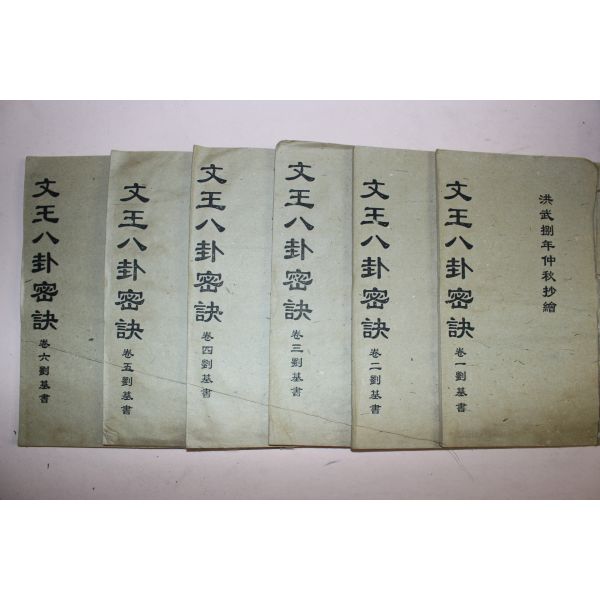 洪武捌年仲秋抄繪
文王八卦密訣 卷一 劉基書
文王八卦密訣 卷二 劉基書
文王八卦密訣 卷三 劉基書
文王八卦密訣 卷四 劉基書
文王八卦密訣 卷五 劉基書
文王八卦密訣 卷六 劉基書